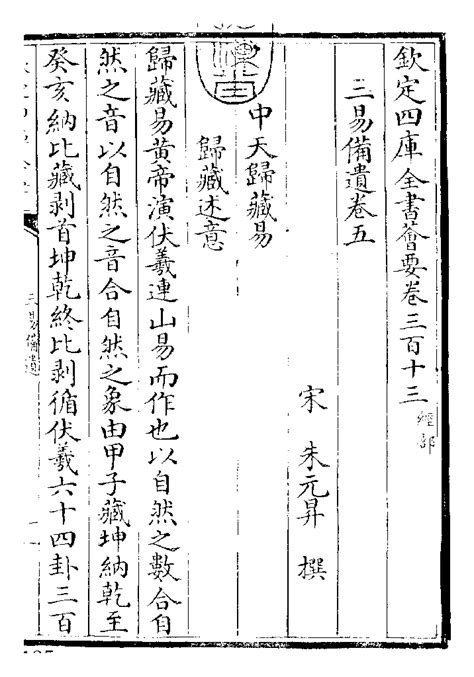 欽定四庫全書薈要卷三百十三 經部
三易備遺卷五
宋 朱元昇 撰
中天歸藏易
歸藏述意
歸藏易黃帝演伏羲連山易而作也以自然之數合自
然之音以自然之音合自然之象由甲子藏坤納乾至
癸亥納比藏剥首坤乾終比剥循伏羲六十四卦三百
三易備遺